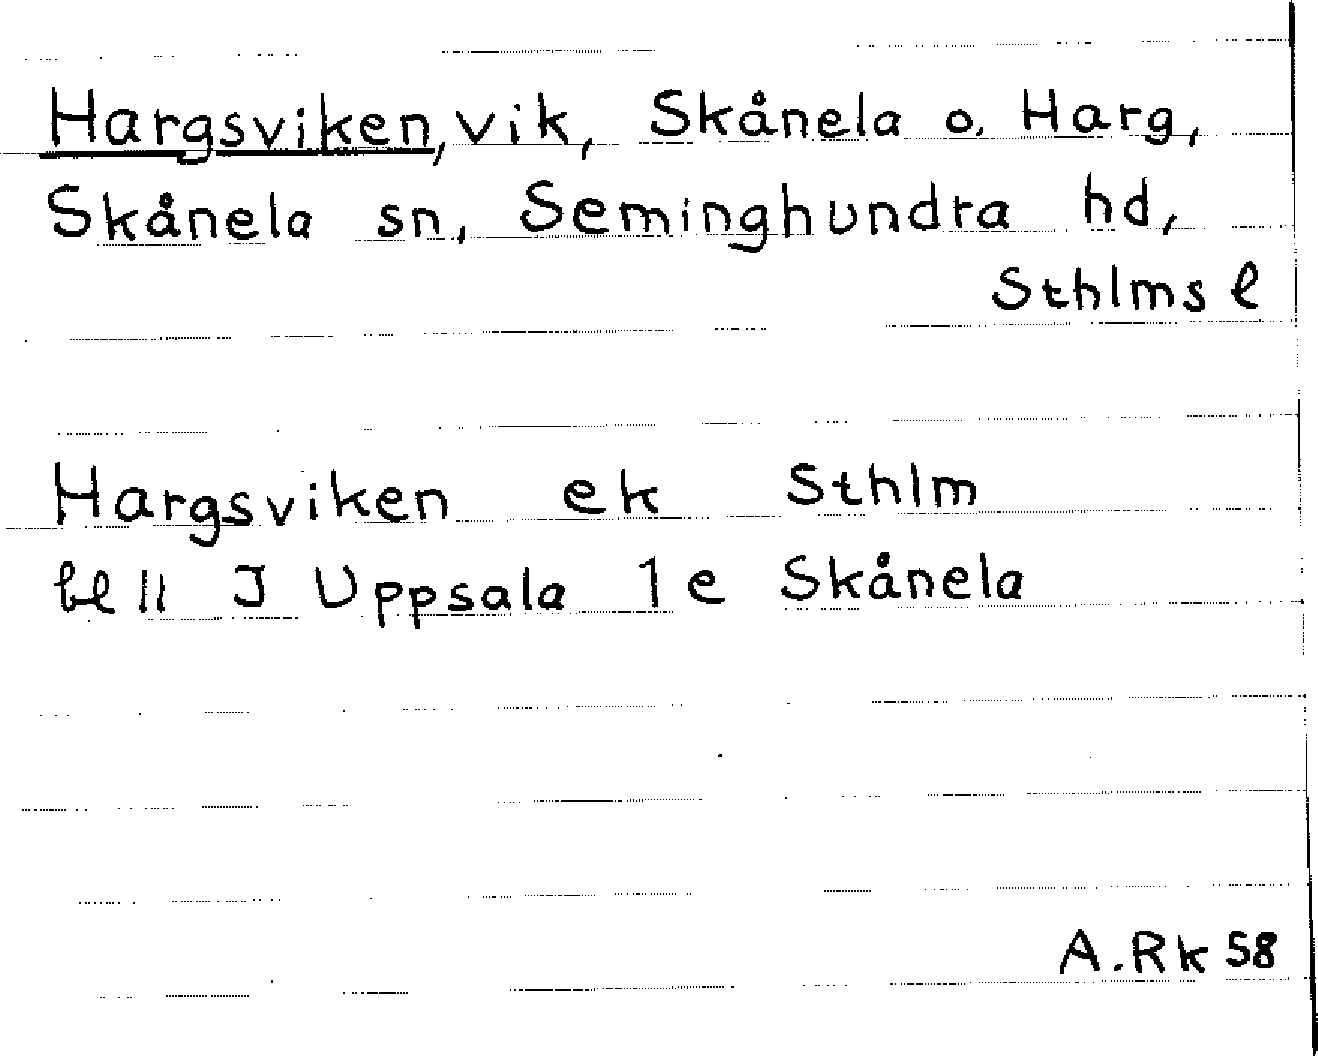 Hargsviken, vik, Skånela o. Harg,
Skånela sn, Seminghundra hd,
Sthlms l
Hargsviken ek Sthlm
bl 11 J Uppsala 1 e Skånela
A.Rk 58